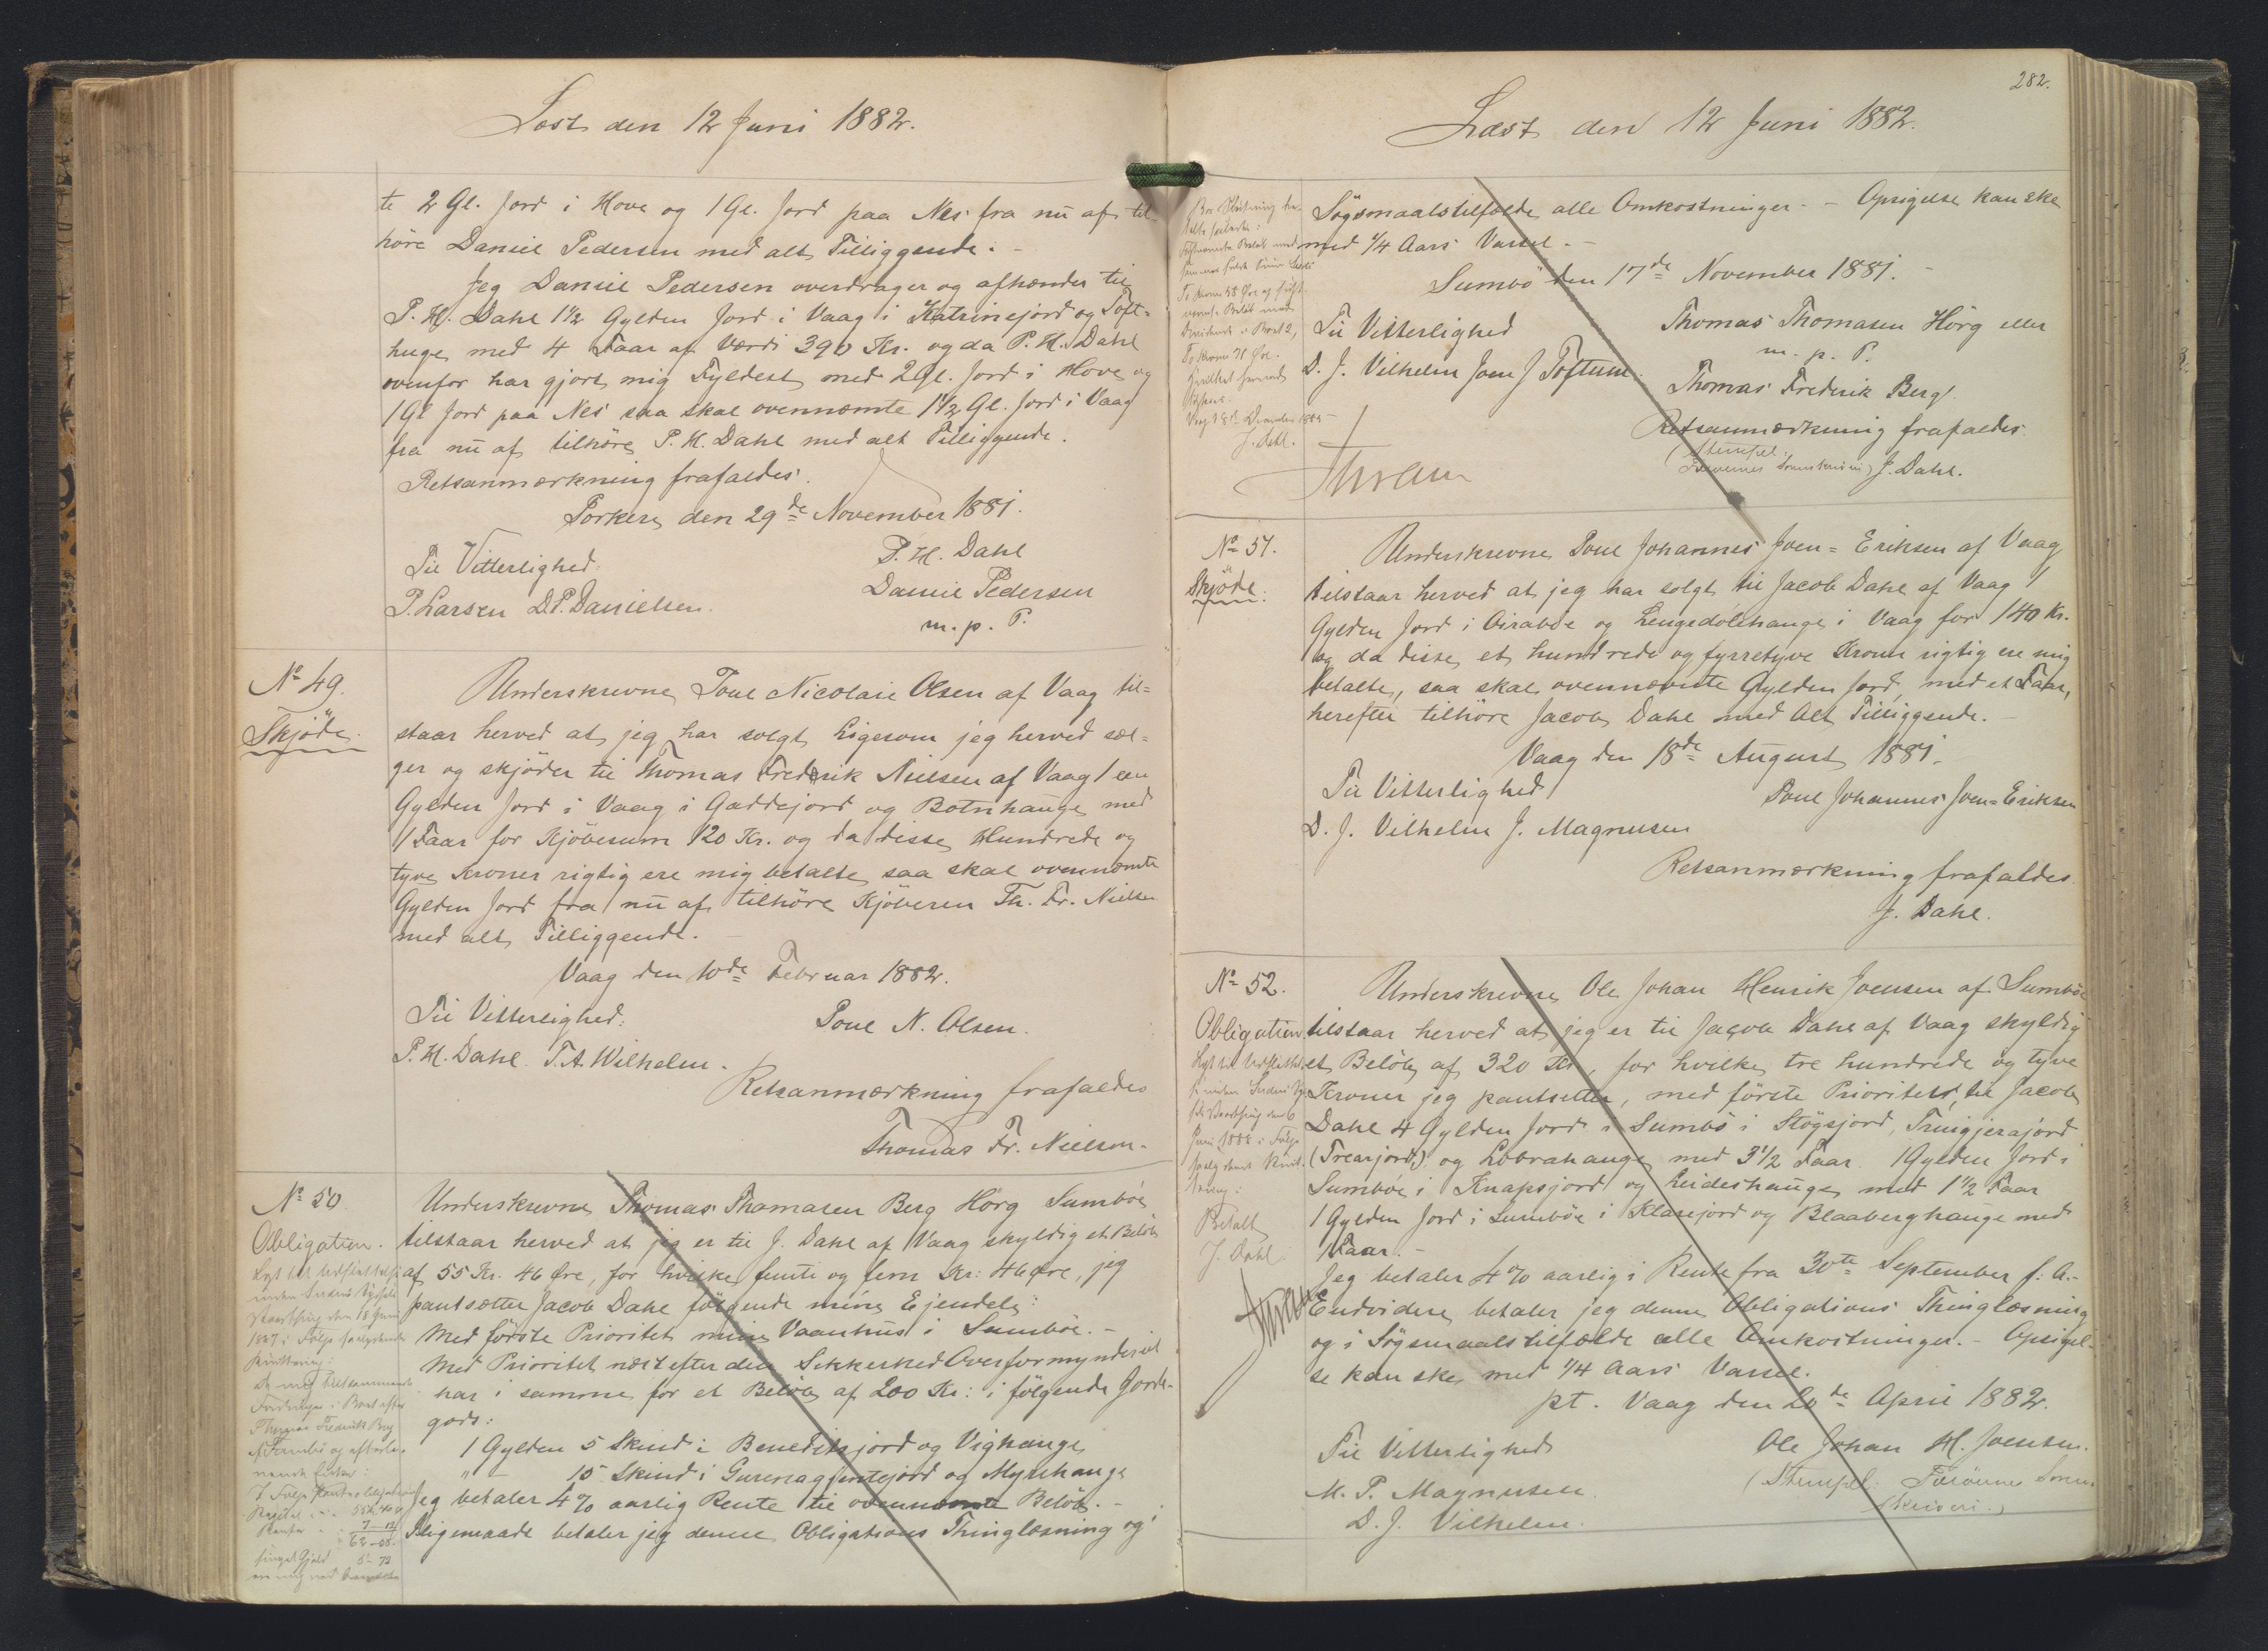 Læst den 12 Juni 1882.
te 2 Gl. Jord i Hove og 1 Gl. Jord paa Nes fra nu af til-
höre Daniel Pedersen med alt Tilliggende. -
Jeg Daniel Pedersen overdrager og afhænder til
P. H. Dahl 1½ Gylden Jord i Vaag i Katrinejord og Toft-
huge med 4 Faar af Værdi 390 Kr. og da P. H. Dahl
ovenfor har gjort mig Fyldest med 2 Gl. Jord i Hove og
1 Gl Jord paa Nes saa skal ovennæmte 1½ Gl. Jord i Vaag
fra nu af tilhöre P. H. Dahl med alt Tilliggende.
Retsanmærkning frafaldes.
Porkere den 29de November 1881.
Til Vitterlighed:
P. H. Dahl
P. Larsen D. P. Danielsen.
Daniel Pedersen
m. p. P.
No 49.
Skjöde.
Underskrevne Poul Nicolaie Olsen af Vaag til=
staar herved at jeg har solgt ligesom jeg herved sæl=
ger og skjöder til Thomas Frederik Nielsen af Vaag 1 een
Gylden Jord i Vaag i Gaddejord og Botnhauge med
1 Faar for Kjöbesum 120 Kr. og da disse Hundrede og
tyve Kroner rigtig ere mig betalte saa skal ovennæmte
Gylden Jord fra nu af tilhöre Kjöberen Th. Fr. Nielsen
med alt Tilliggende. -
Vaag den 10de Februar 1882.
Til Vitterlighed:
Poul N. Olsen.
P. H. Dahl. T. A. Wilhelm.
Retsanmærkning frafaldes
Thomas Fr. Nielsen.
No 50
Obligation.
Underskrevne Thomas Thomasen Berg Hörg Sumböe
tilstaar herved at jeg er til J. Dahl af Vaag skyldig et Belöb
af 55 Kr. 46 Öre, for hvilke femti og fem Kr: 46 Öre, jeg
pantsætter Jacob Dahl fölgende mine Ejendele:
Med förste Prioritet mine Vaanhus i Sumböe. -
Med Prioritet næst efter den Sikkerhed Overformynderiet
har i samme for et Belöb af 200 Kr: i fölgende Jorde-
gods:
1 Gylden 5 Skind i Beneditsjord og Vighauge
" - 15 Skind i og Myrehauge
Jeg betaler 4% aarlig Rente til ovennæmte Belöb. -
Ligemaade betaler jeg denne Obligations Thinglæsning og
Lyst til Udslettelse
inden Suderø Syssels
Vaarthing den 18 Juni
1887 i Følge
Kvittering:
282.
Læst den 12 Juni 1882.
Sögsmaalstilfælde alle Omkostninger. - Opsigelse kan ske
med ¼ Aars Varsel. -
Sumbö den 17de November 1881. -
Til Vitterlighed
Thomas Thomasen Hörg eller
m. p. P.
D. J. Vilhelm Joen J Toftum.
Thomas Frederik Berg.
Retsanmærkning frafaldes.
(Stempel.
Færøernes Sorenskriveri) J. Dahl.
Vaag 18de December 1885
J. Dahl.
No 51.
Skjöde:
Underskrevne Poul Johannes Joen=Eriksen af Vaag
tilstaar herved at jeg har solgt til Jacob Dahl af Vaag 1
Gylden Jord i Airaböe og Lengedölehauge i Vaag for 140 Kr.
og da disse et hundrede og fyrretyve Kroner rigtig ere mig
betalte, saa skal ovennævnte Gylden Jord, med et Faar,
herefter tilhöre Jacob Dahl med Alt Tilliggende. -
Vaag den 18de August 1881.
Til Vitterlighed
Poul Johannes Joen=Eriksen
D. J. Vilhelm J. Magnusen
Retsanmærkning frafaldes.
J. Dahl.
No 52.
Obligation
Underskrevne Ole Johan Henrik Joensen af Sumböe
tilstaar herved at jeg er til Jacob Dahl af Vaag skyldig
et Belöb af 320 Kr, for hvilke tre hundrede og tyve
Kroner jeg pantsetter, med förste Prioritet, til Jacob
Dahl 4 Gylden Jord i Sumbö i Stögsjord, Tringjerajord
(Trearjord) og Lobrahauge med 3½ Faar. 1 Gylden Jord i
Sumböe i Knapsjord og Leideshauge med 1½ Faar
1 Gylden Jord i Sumböe i Klarejord og Blaaberghauge med
Faar. -
Jeg betaler 4% aarlig i Rente fra 30te September f: A. -
Endvidere betaler jeg denne Obligations Thinglæsning
og i Sögsmaalstilfælde alle Omkostninger. - Opsigel-
se kan ske med ¼ Aars Varsel.
pt. Vaag den 20de April 1882.
Til Vitterlighed
Ole Johan H. Joensen.
M. P. Magnusen
(Stempel. Færöernes Soren-
skriveri.)
D. J. Vilhelm.
Betalt
J. Dahl.